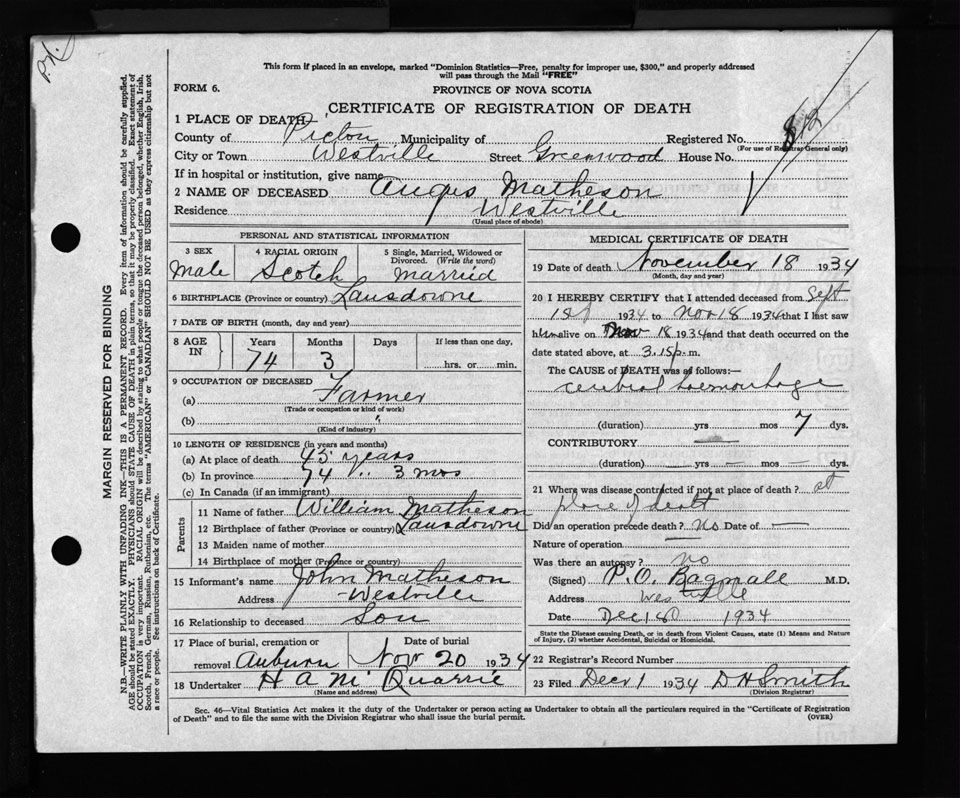 P.N.
This form if placed in an envelope, marked "Dominion Statistics—Free, penalty for improper use, $300," and properly addressed
will pass through the Mail "FREE"
FORM 6.
PROVINCE OF NOVA SCOTIA
CERTIFICATE OF REGISTRATION OF DEATH
1 PLACE OF DEATH
County of Pictou Municipality of Registered No.
(For use of Registrar General only)
City or Town Westville Street Greenwood House No.
If in hospital or institution, give name
2 NAME OF DECEASED Angus Matheson
Residence Westville
(Usual place of abode)
PERSONAL AND STATISTICAL INFORMATION
3 SEX 4 RACIAL ORIGIN 5 Single, Married, Widowed or Divorced. (Write the word)
Male Scotch Married
6 BIRTHPLACE (Province or country) Lansdowne
7 DATE OF BIRTH (month, day and year)
8 AGE IN Years Months Days If less than one day,
74 3 hrs. or min.
9 OCCUPATION OF DECEASED
(a) Farmer
(Trade or occupation or kind of work)
(b) "
(Kind of industry)
10 LENGTH OF RESIDENCE (in years and months)
(a) At place of death 45 years
(b) In province 74 " 3 mos
(c) In Canada (if an immigrant)
Parents
11 Name of father William Matheson
12 Birthplace of father (Province or country) Lansdowne
13 Maiden name of mother
14 Birthplace of mother (Province or country)
15 Informant's name John Matheson
Address Westville
16 Relationship to deceased Son
17 Place of burial, cremation or Date of burial
removal Auburn Nov 20 1934
18 Undertaker H A Mc Quarrie
(Name and address)
MEDICAL CERTIFICATE OF DEATH
19 Date of death November 18 1934
(Month, day and year)
20 I HEREBY CERTIFY that I attended deceased from Sept
1st 1934 to Nov 18 1934 that I last saw
him alive on Nov 18 1934 and that death occurred on the
date stated above, at 3.15 p. m.
The CAUSE of DEATH was as follows:—
cerebral haemorrhage
(duration) yrs mos 7 dys.
CONTRIBUTORY —
(duration) yrs — mos — dys.
21 Where was disease contracted if not at place of death? at
place of death
Did an operation precede death? No Date of —
Nature of operation —
Was there an autopsy? no
(Signed) P.O. M.D.
Address Westville
Date Dec 1934
State the Disease causing Death, or in death from Violent Causes, state (1) Means and Nature
of Injury, (2) whether Accidental, Suicidal or Homicidal.
22 Registrar's Record Number
23 Filed Decr 1 1934 D H Smith
(Division Registrar)
Sec. 46—Vital Statistics Act makes it the duty of the Undertaker or person acting as Undertaker to obtain all the particulars required in the "Certificate of Registration
of Death" and to file the same with the Division Registrar who shall issue the burial permit.
(OVER)
MARGIN RESERVED FOR BINDING
N.B.—WRITE PLAINLY WITH UNFADING INK—THIS IS A PERMANENT RECORD. Every item of information should be carefully supplied.
AGE should be stated EXACTLY. PHYSICIANS should STATE CAUSE OF DEATH in plain terms, so that it may be properly classified. Exact statement of
OCCUPATION is very important. RACIAL ORIGIN will be described by stating to what people or tongue the deceased person belonged, whether English, Irish,
Scotch, French, German, Russian, Ruthenian, etc. The terms "AMERICAN" or "CANADIAN" SHOULD NOT BE USED as they express citizenship but not
a race or people. See instructions on back of Certificate.